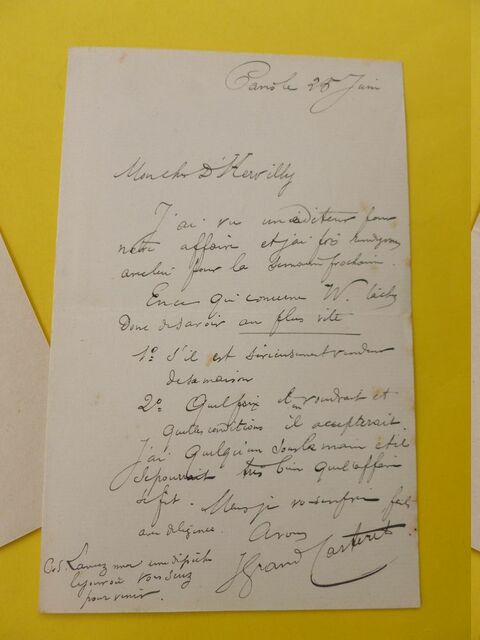 Paris le 25 Juin
Mon cher D'Hervilly
J'ai vu un éditeur pour
notre affaire et j'ai pris rendez vous
avec lui pour la semaine prochaine.
En ce qui concerne W. tâchez
donc de savoir au plus vite
1º S'il est sérieusement vendeur
de sa maison
2º Quel prix il en voudrait et
quelles conditions il accepterait.
J'ai quelqu'un sous la main et il
se pourrait très bien que l'affaire
se fit. Mais je vous en prie faites
diligence. A vous
J Grand Carteret
Lancez moi une dépêche
le jour où vous serez
pour venir.